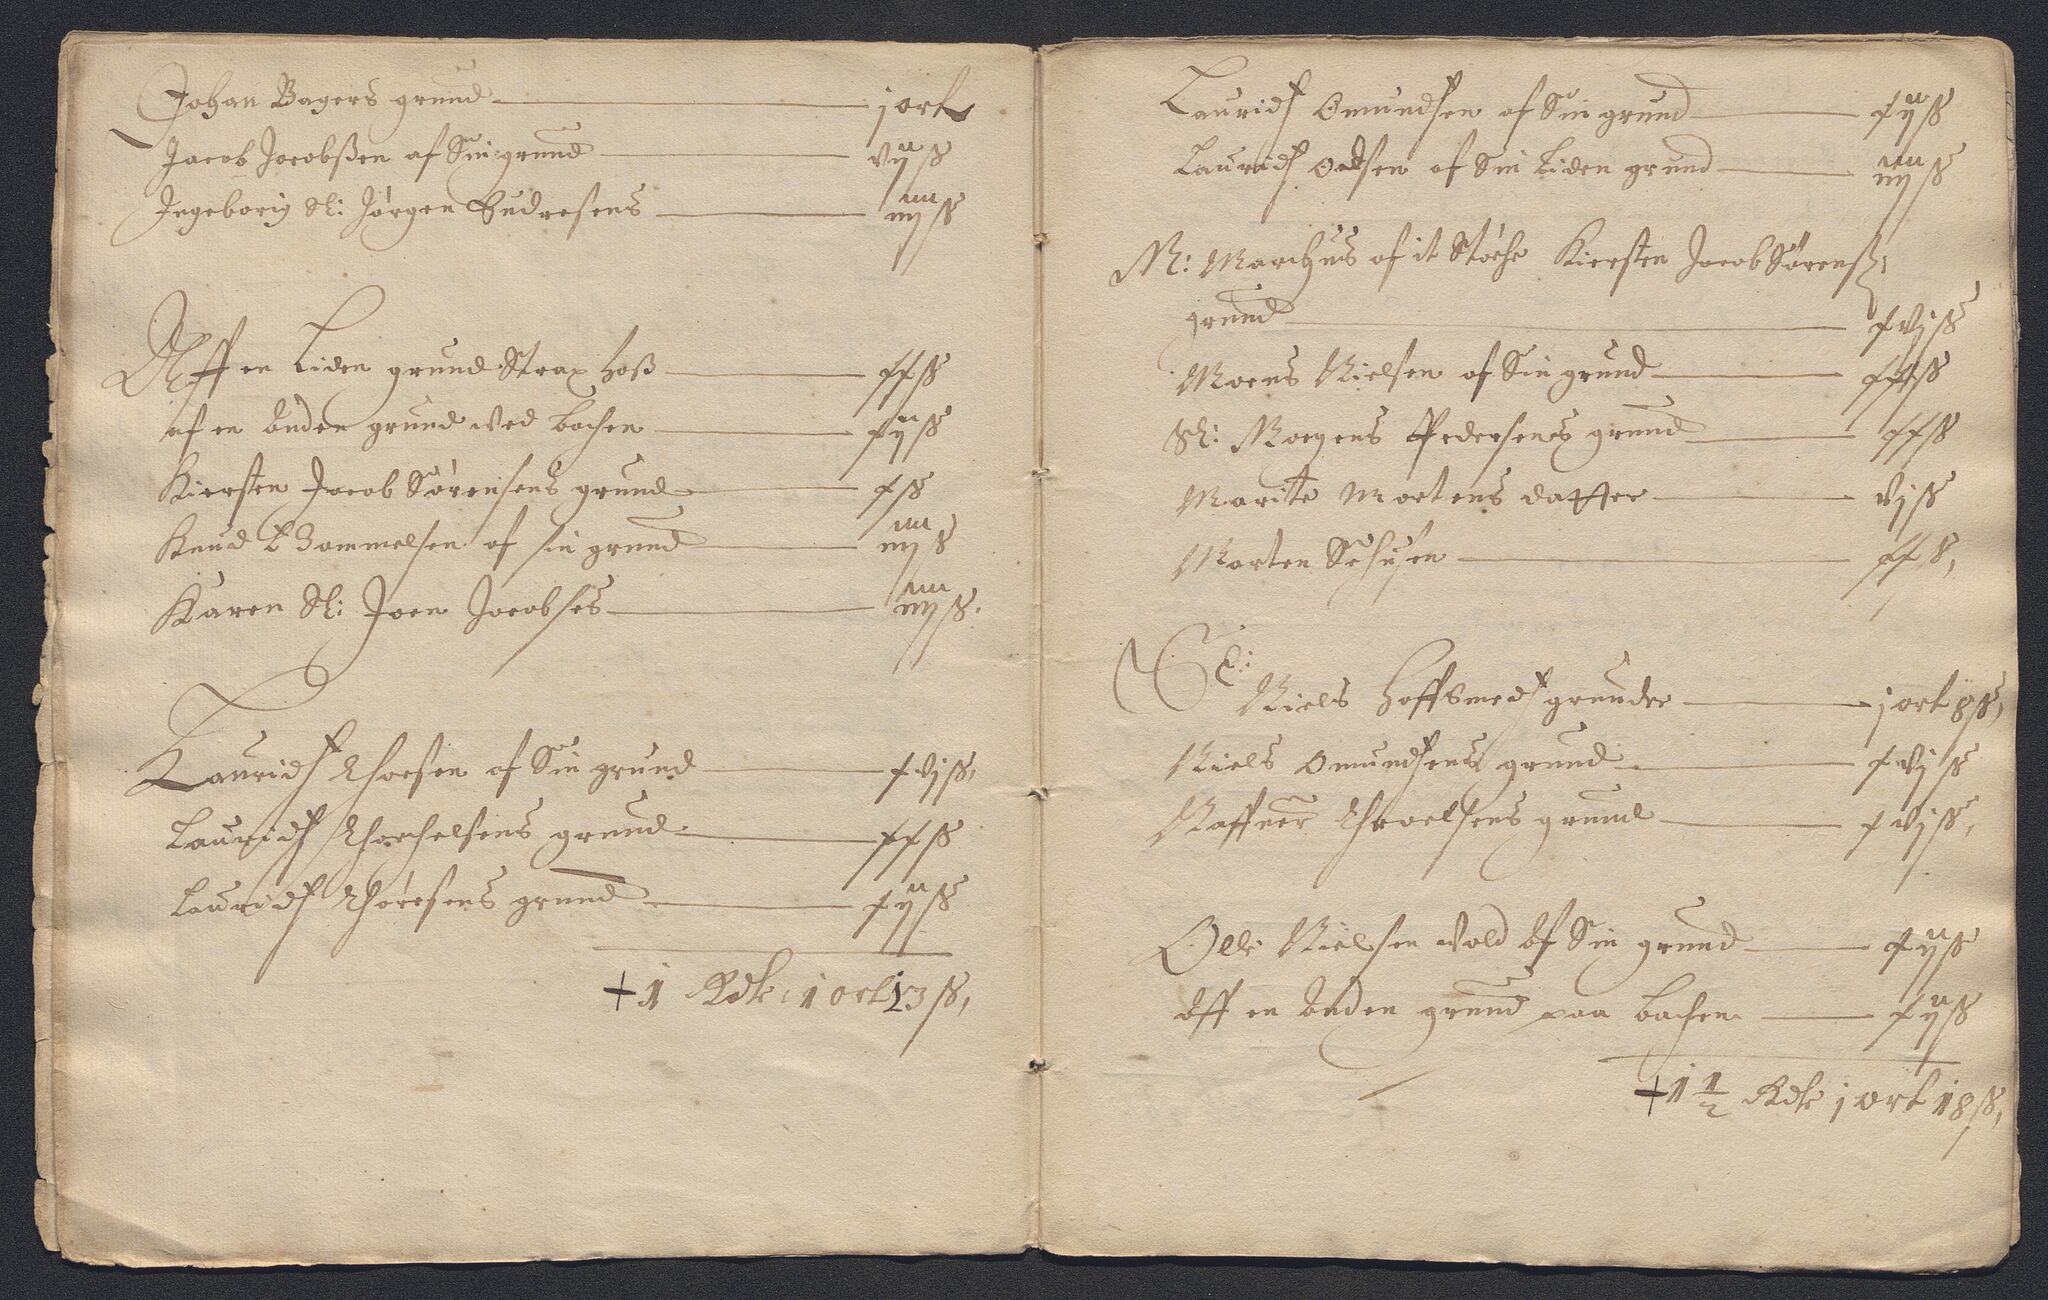 Johan Bagers grund — j ort
Jacob Jacobßen af Sin grund — vijß
Ingeborig Sl: Jørgen — iiijß
Aff en Liden grund Strax hoß — xxß
af en anden grund ved bachen — xijß
Kiersten Jacob Sørensens grund — xß
Knud Gammelsen af sin grund — iiijß
Karen Sl: Joen Jacobses — iiijß.
Lauridß Thoesen af Sin grund — xvjß,
Lauridß Thorchelsens grund — xxß
Lauridß Thoresens grund — xijß
+ 1 Rdlr 1 ort 13 ß,
Lauridß Omundsen af Sin grund — xijß
Lauridß Oelsen af Sin Liden grund — iiijß
M: Marchus af it Støche Kiersten Jacob Sørenß:
grund — xvjß
Moens Nielsen af Sin grund — xxß
Sl: Mogens Pedersens grund — xxß
Marite Mortens datter — vjß
Morten — xxß,
Sl:
Niels Hoffsmedß grunder — j ort 8ß,
Niels Omundsens grund — xvjß
Raffner Throelsens grund — xvjß,
Olle Nielsen vold Af Sin grund — xijß
Aff en Anden grund paa bachen — xijß
+ 1 1/2 Rdlr j ort 18ß,